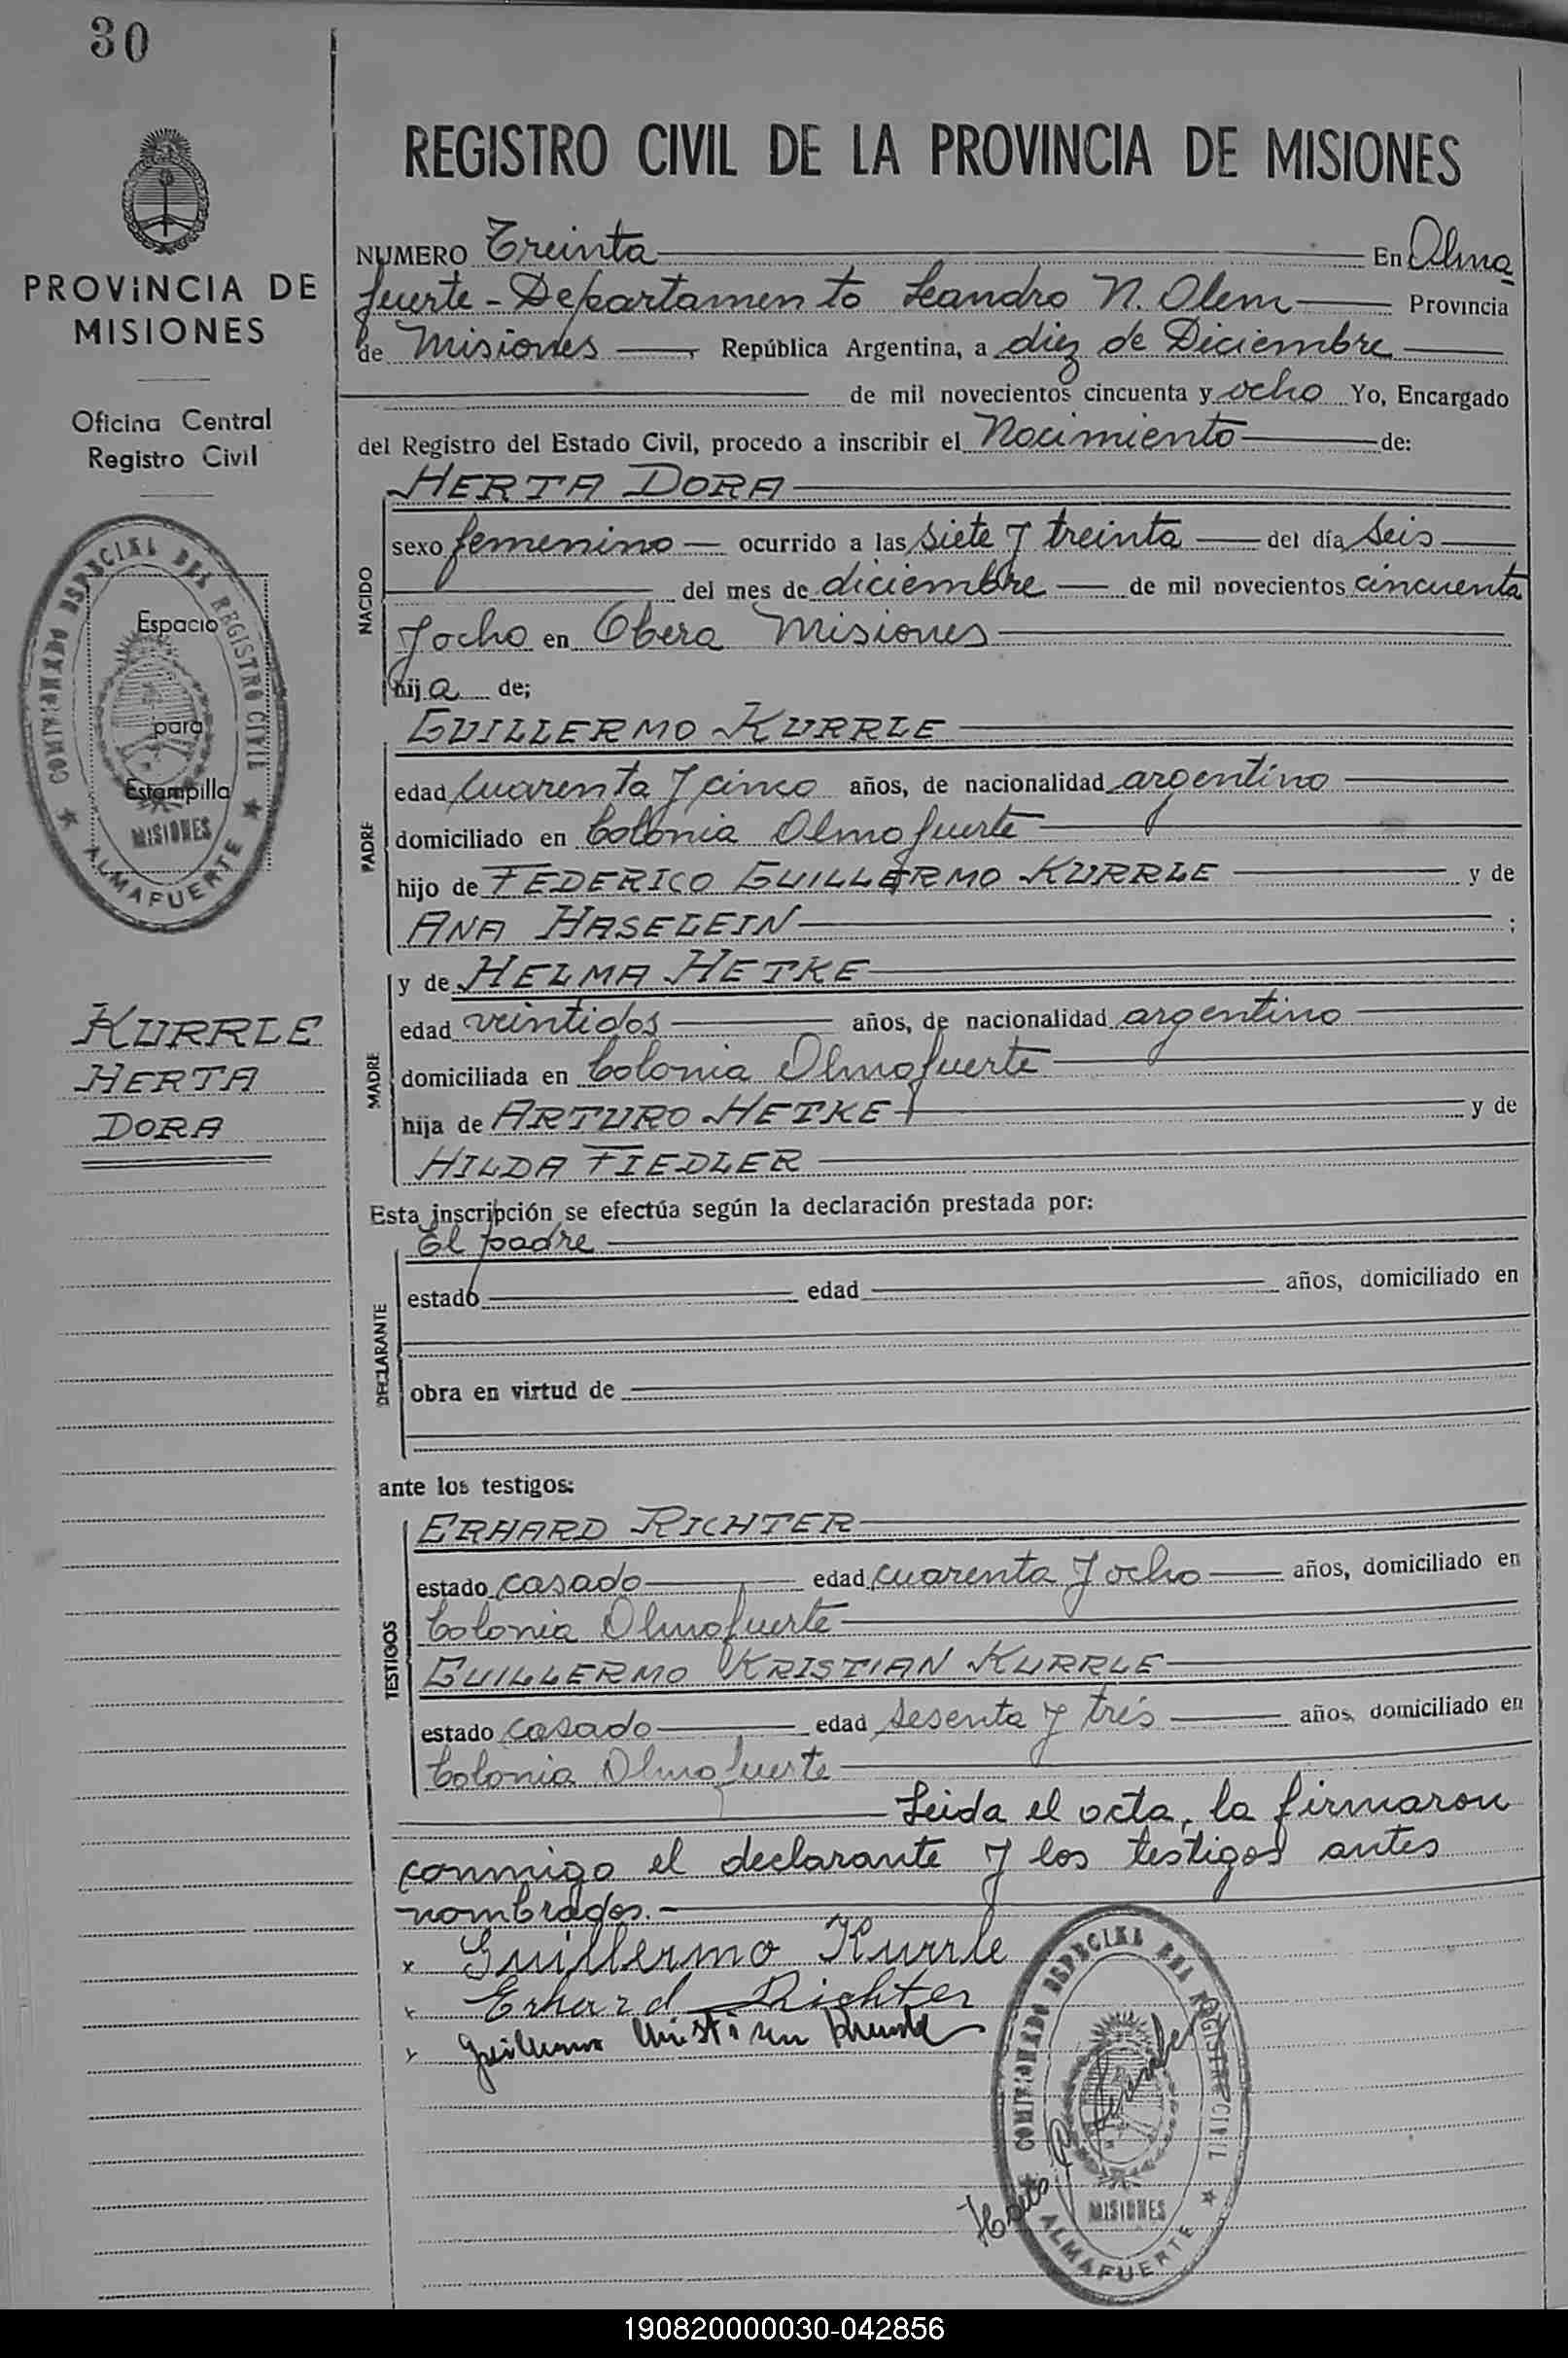 30
PROVINCIA DE
MISIONES
Oficina Central
Registro Civil
COMISIONADO ESPECIAL DEL REGISTRO CIVIL
Espacio
para
Estampilla
MISIONES
ALMAFUERTE
KURRLE
HERTA
DORA
REGISTRO CIVIL DE LA PROVINCIA DE MISIONES
NUMERO Treinta En Alma
fuerte - Departamento Leandro N. Alem Provincia
de Misiones República Argentina, a diez de Diciembre
de mil novecientos cincuenta y ocho Yo, Encargado
del Registro del Estado Civil, procedo a inscribir el Nacimiento de:
NACIDO
HERTA DORA
sexo femenino ocurrido a las siete y treinta del día seis
del mes de diciembre de mil novecientos cincuenta
y ocho en Obera Misiones
hija de;
PADRE
GUILLERMO KURRLE
edad cuarenta y cinco años, de nacionalidad argentino
domiciliado en Colonia Almafuerte
hijo de FEDERICO GUILLERMO KURRLE y de
ANA HASELEIN ;
MADRE
y de HELMA HETKE
edad veintidos años, de nacionalidad argentino
domiciliada en Colonia Almafuerte
hija de ARTURO HETKE y de
HILDA FIEDLER
Esta inscripción se efectúa según la declaración prestada por:
DECLARANTE
El padre
estado edad años, domiciliado en
obra en virtud de
ante los testigos:
TESTIGOS
ERHARD RICHTER
estado casado edad cuarenta y ocho años, domiciliado en
Colonia Almafuerte
GUILLERMO KRISTIAN KURRLE
estado casado edad sesenta y trés años, domiciliado en
Colonia Almafuerte
Leida el acta, la firmaron
conmigo el declarante y los testigos antes
nombrados.-
x Guillermo Kurrle
x Erhard Richter
x Guillermo Christian Kurrle
COMISIONADO ESPECIAL DEL REGISTRO CIVIL
MISIONES
ALMAFUERTE
190820000030-042856